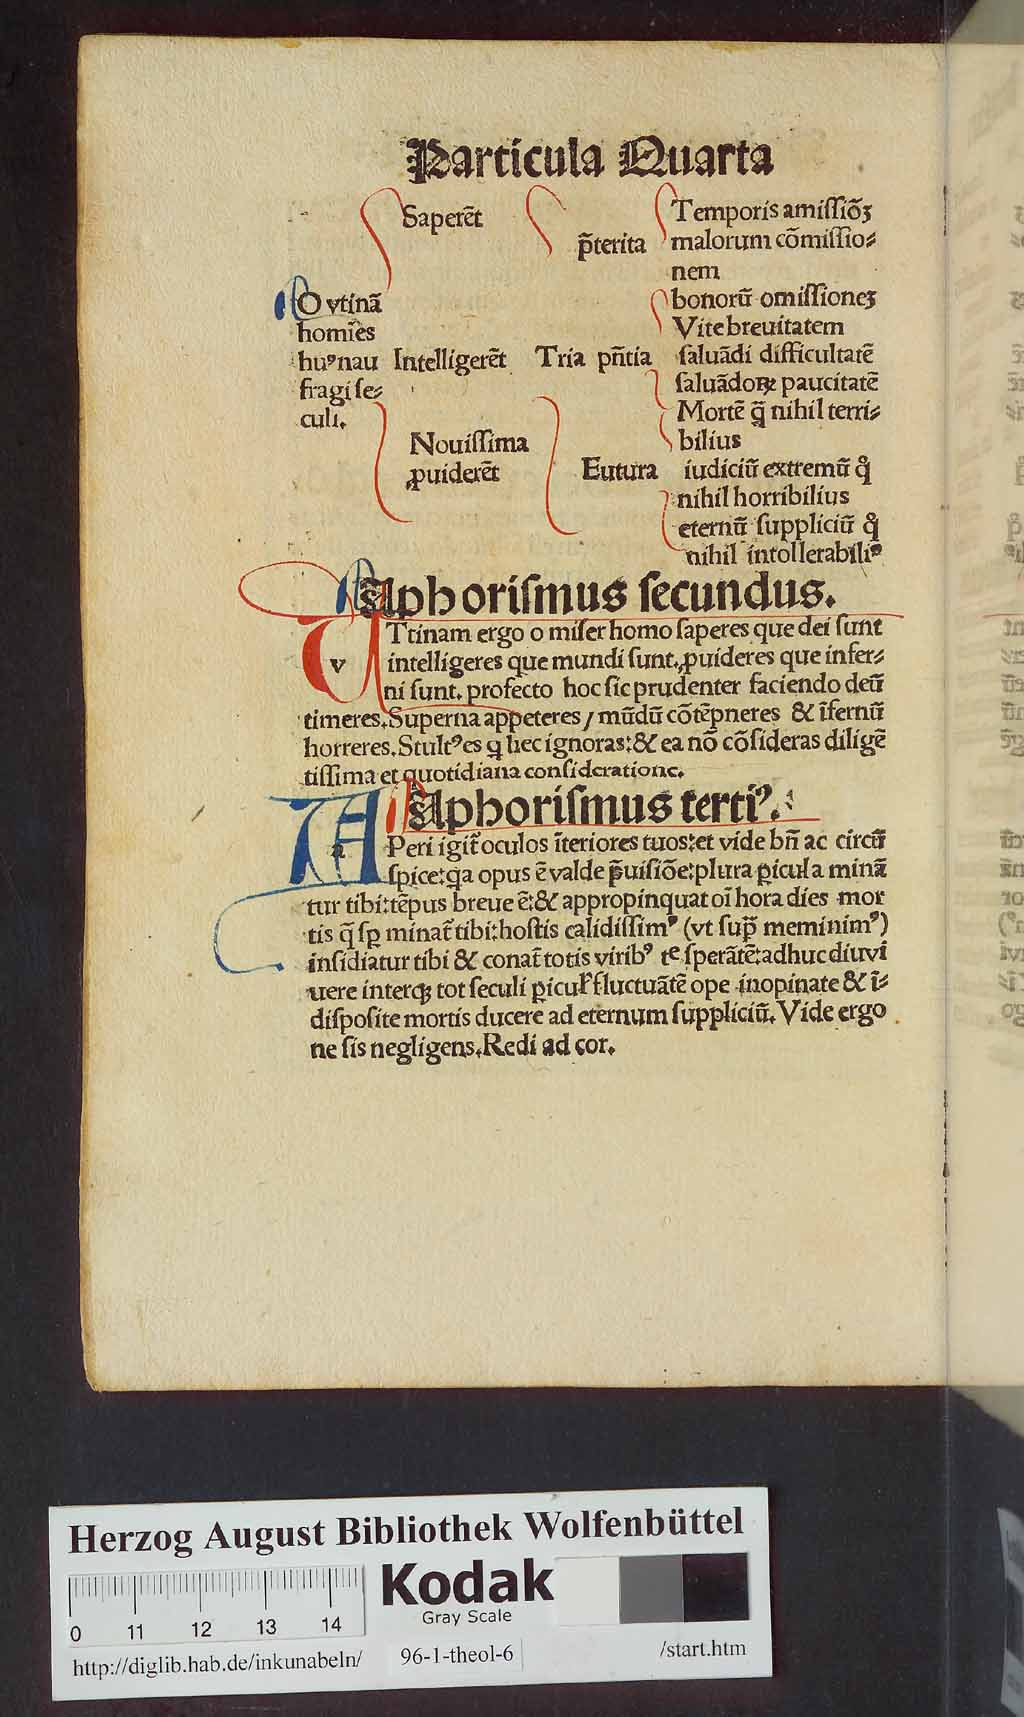 Particula Quarta
Saperēt
p̄terita
Temporis amissiōꝫ
malorum cōmissio⸗
nem
O vtinā
homīes
huꝰnau
fragi se⸗
culi.
bonorū omissioneꝫ
Vite breuitatem
Intelligerēt Tria pn̄tia
saluādi difficultatē
saluādoꝝ paucitatē
Mortē q̄ nihil terri⸗
bilius
Nouissima
ꝓuiderēt
Eutura
iudiciū extremū qͦ
nihil horribilius
eternū suppliciū qͦ
nihil intollerabiliꝰ
Aphorismus secundus.
v
Ttinam ergo o miser homo saperes que dei sunt
intelligeres que mundi sunt. ꝓuideres que infer⸗
ni sunt. profecto hoc sic prudenter faciendo deū
timeres. Superna appeteres / mūdū cōtēpneres & īfernū
horreres. Stultꝰ es q hec ignoras: & ea nō cōsideras diligē
tissima et quotidiana consideratione.
Aphorismus tertiꝰ.
a
Peri igit̄ oculos īteriores tuos: et vide bn̄ ac circū
spice: qa opus ē valde p̄uisiōe: plura ꝑicula minā
tur tibi: tēpus breue ē: & appropinquat oī hora dies mor
tis q̄ sꝑ minat̄ tibi: hostis calidissimꝰ (vt sup̄ meminimꝰ)
insidiatur tibi & conat̄ totis viribꝰ te sperātē: adhuc diuvi
uere interqꝫ tot seculi ꝑicul̄ fluctuātē ope inopinate & ī⸗
disposite mortis ducere ad eternum suppliciū. Vide ergo
ne sis negligens. Redi ad cor.
Herzog August Bibliothek Wolfenbüttel
Kodak
Gray Scale
0 11 12 13 14
http://diglib.hab.de/inkunabeln/ 96-1-theol-6 /start.htm